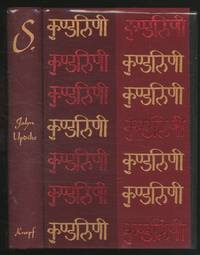 S.
John
Updike
Knopf
कुण्डलिनी कुण्डलिनी
कुण्डलिनी कुण्डलिनी
कुण्डलिनी कुण्डलिनी
कुण्डलिनी कुण्डलिनी
कुण्डलिनी कुण्डलिनी
कुण्डलिनी कुण्डलिनी
कुण्डलिनी कुण्डलिनी